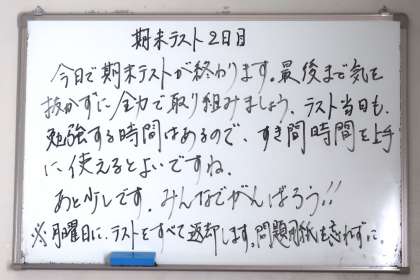 期末テスト2日目
今日で期末テストが終わります。最後まで気を
抜かずに全力で取り組みましょう。テスト当日も、
勉強する時間はあるので、すき間時間を上手
に使えるとよいですね。
あと少しです。みんなでがんばろう!!
※月曜日に、テストをすべて返却します。問題用紙も忘れずに。